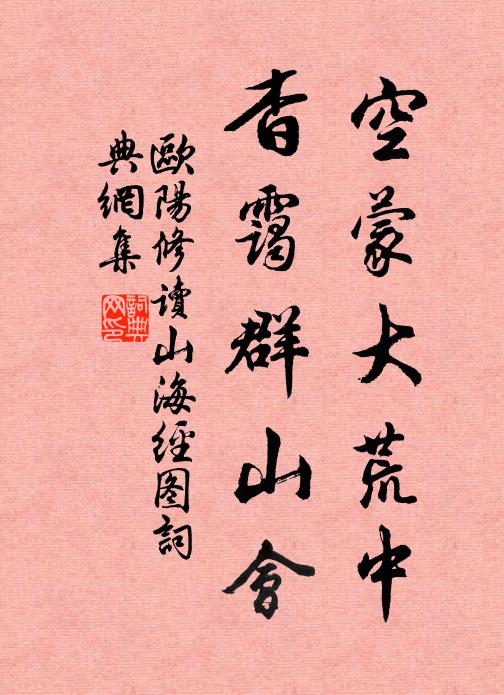 空蒙大荒中
杳靄群山會
歐陽修讀山海經图詞
典網集
詞典
网印